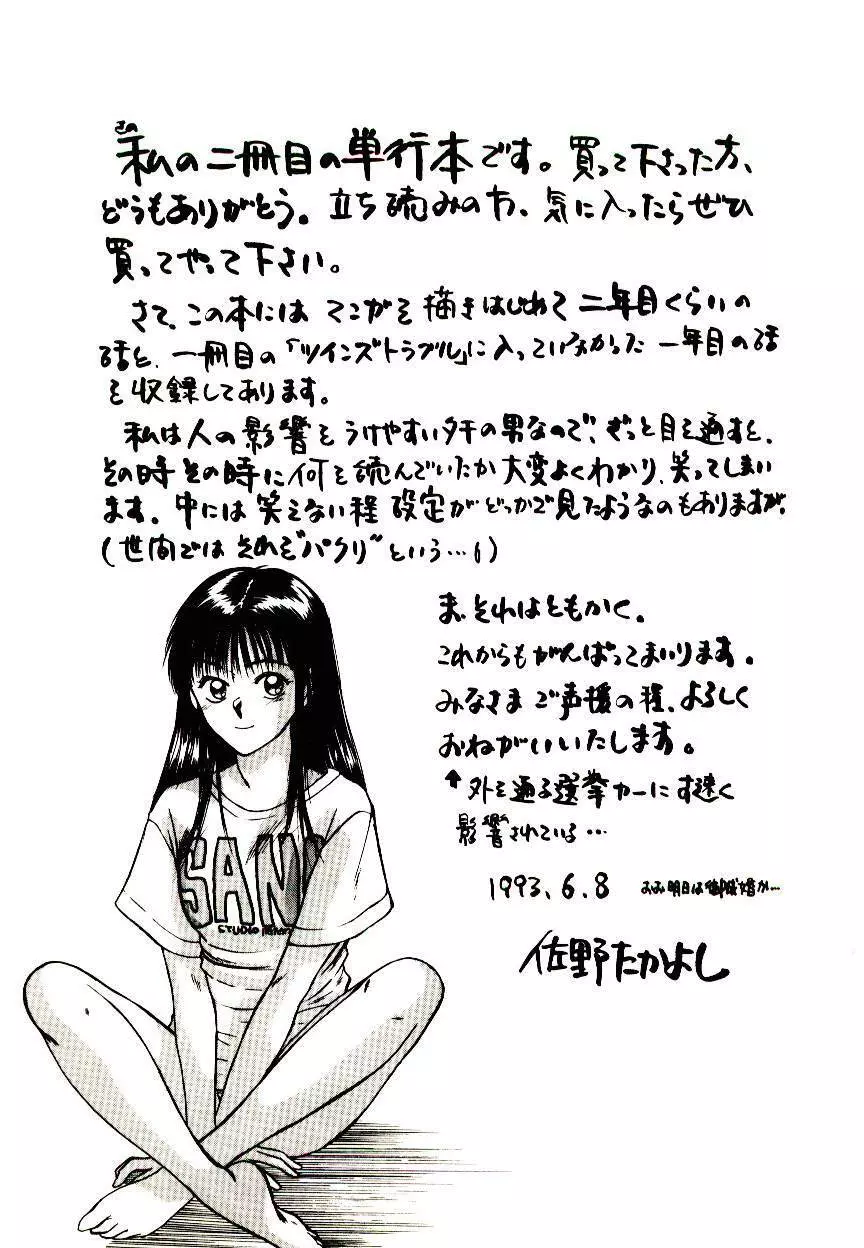 さの
私の二冊目の単行本です。買って下さった方、
どうもありがとう。立ち読みの方、気に入ったらぜひ
買ってやって下さい。
さて、この本には マンガを描きはじめて二年目くらいの
話と、一冊目の「ツインズトラブル」に入っていなかった一年目の話
を収録してあります。
私は人の影響をうけやすいタチの男なので、ざっと目を通すと、
その時その時に何を読んでいたか大変よくわかり、笑ってしまい
ます。中には笑えない程設定がどっかで見たようなのもありますが、
(世間ではそれを"パクリ"という…!)
ま、それはともかく。
これからもがんばってまいります。
みなさまご声援の程、よろしく
おねがいいたします。
↑外を通る選挙カーにす速く
影響されている…
1993.6.8 明日は御成婚か…
佐野たかよし
SAN
STUDIO